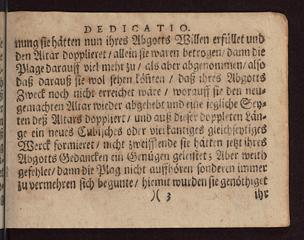 DEDICATIO.
nung sie hätten nun ihres Abgotts Willen erfüllet und
den Altar dopplieret / allein sie waren betrogen / dann die
Plage darauff viel mehr zu / als aber abgenommen / also
daß darauß sie wol sehen kōnten / daß ihres Abgotts
Zweck noch nicht erreichet wäre / worauff sie den neu-
gemachten Altar wieder abgehebt und eine jegliche Sey-
ten deß Altars doppliert / und auß dieser doppleten Län-
ge ein neues Cubisches oder vierkantiges gleichseytiges
Werck formieret / nicht zweifflende sie hätten jetzt ihres
Abgotts Gedancken ein Genügen geleistet; Aber weith
gefehlet / dann die Plag nicht auffhören sonderen immer
zu vermehren sich begunte / hiemit wurden sie genöthiget
)( 3 ihr